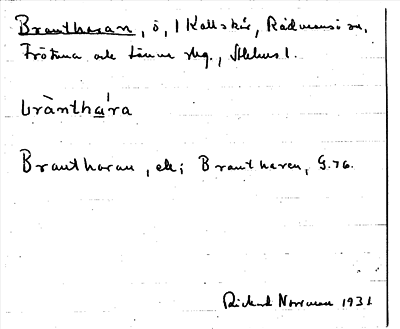 Brantharan, ö, i Kallskär, Rådmansö sn,
Frötuna och Länna skg., Sthlms l.
brànthàra
Brantharan, ek; Brantharen, G.76.
Rickard Norrman 1931